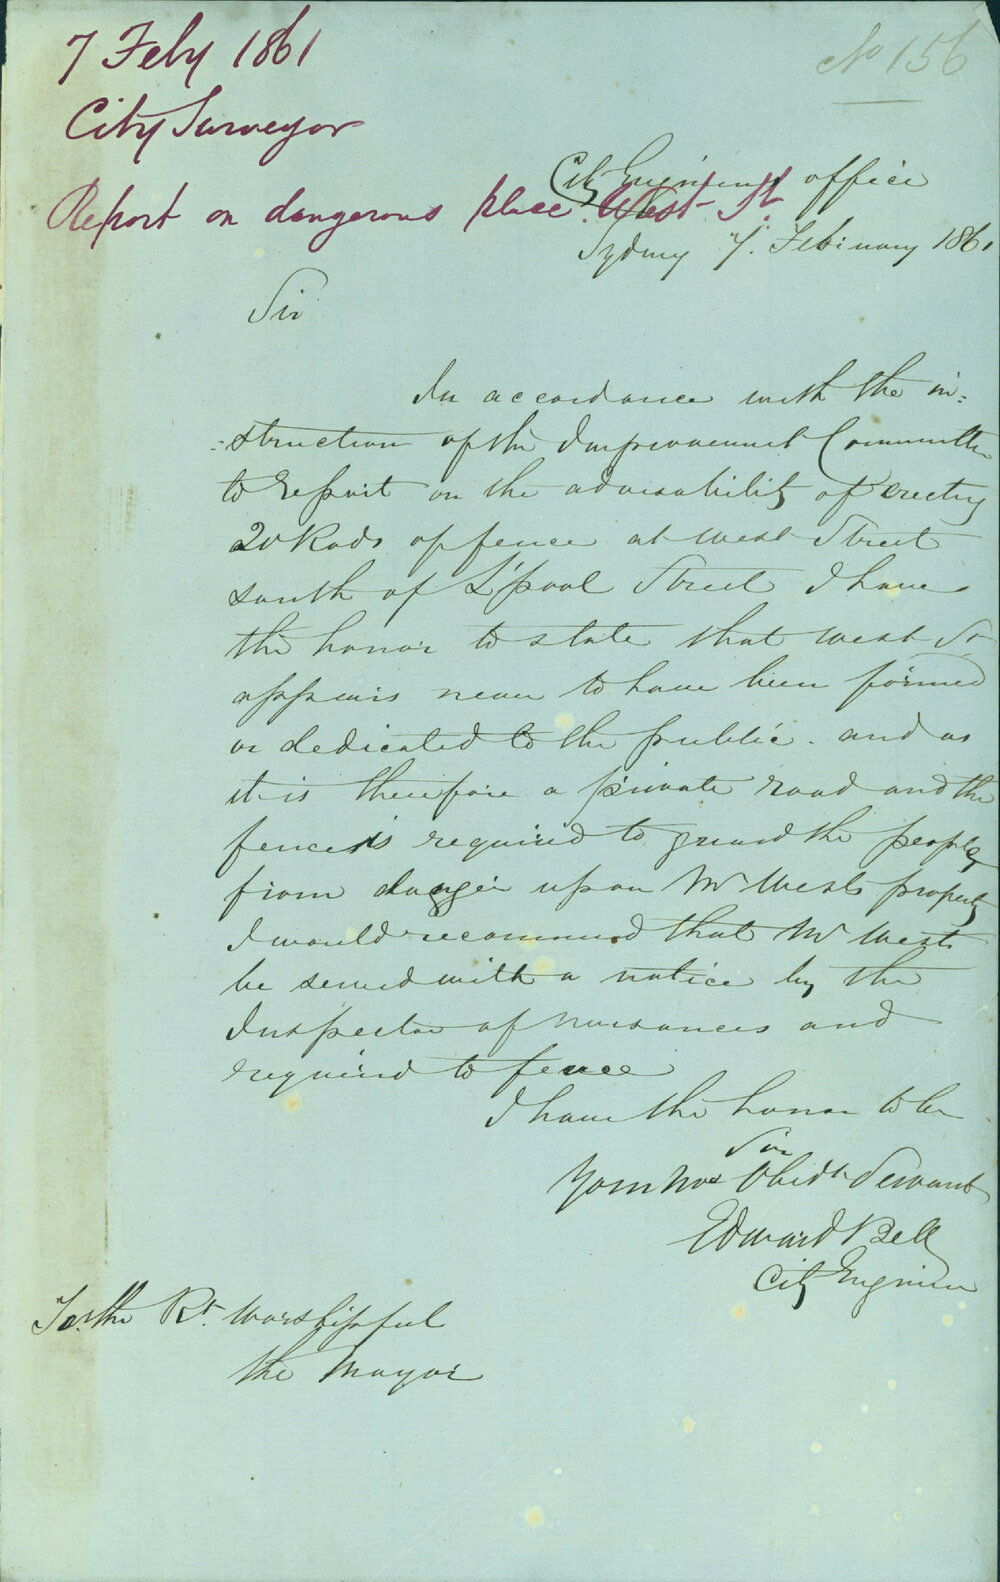 7 Feby 1861
No 156
City Surveyor
City Engineers office
Report on dangerous place West St.
Sydney 7. February 1861
Sir
In accordance with the in:
:struction of the Improvement Committee
to report on the advisability of erecting
20 Rods of fence at West Street
south of L'pool Street I have
the honor to state that West St
appears never to have been formed
or dedicated to the public. and as
it is therefore a private road and the
fence is required to guard the people
from danger upon Mr Wests property
I would recommend that Mr West
be served with a notice by the
Inspector of Nuisances and
required to fence
I have the honor to be
Sir
Your Mos Obidt Servant
Edward Bell
City Engineer
To the Rt. Worshipful
the Mayor